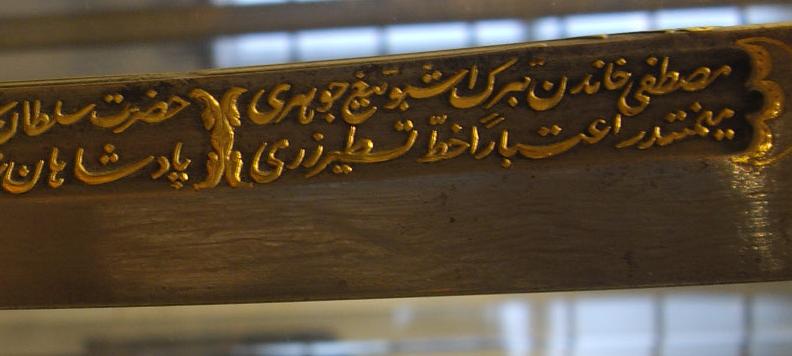 مصطفی خاندن تبرک اشبو تیغ جوهری
میمنتدر اعتبارا خط تسطیر زری
حضرت سلطان
پادشاهان